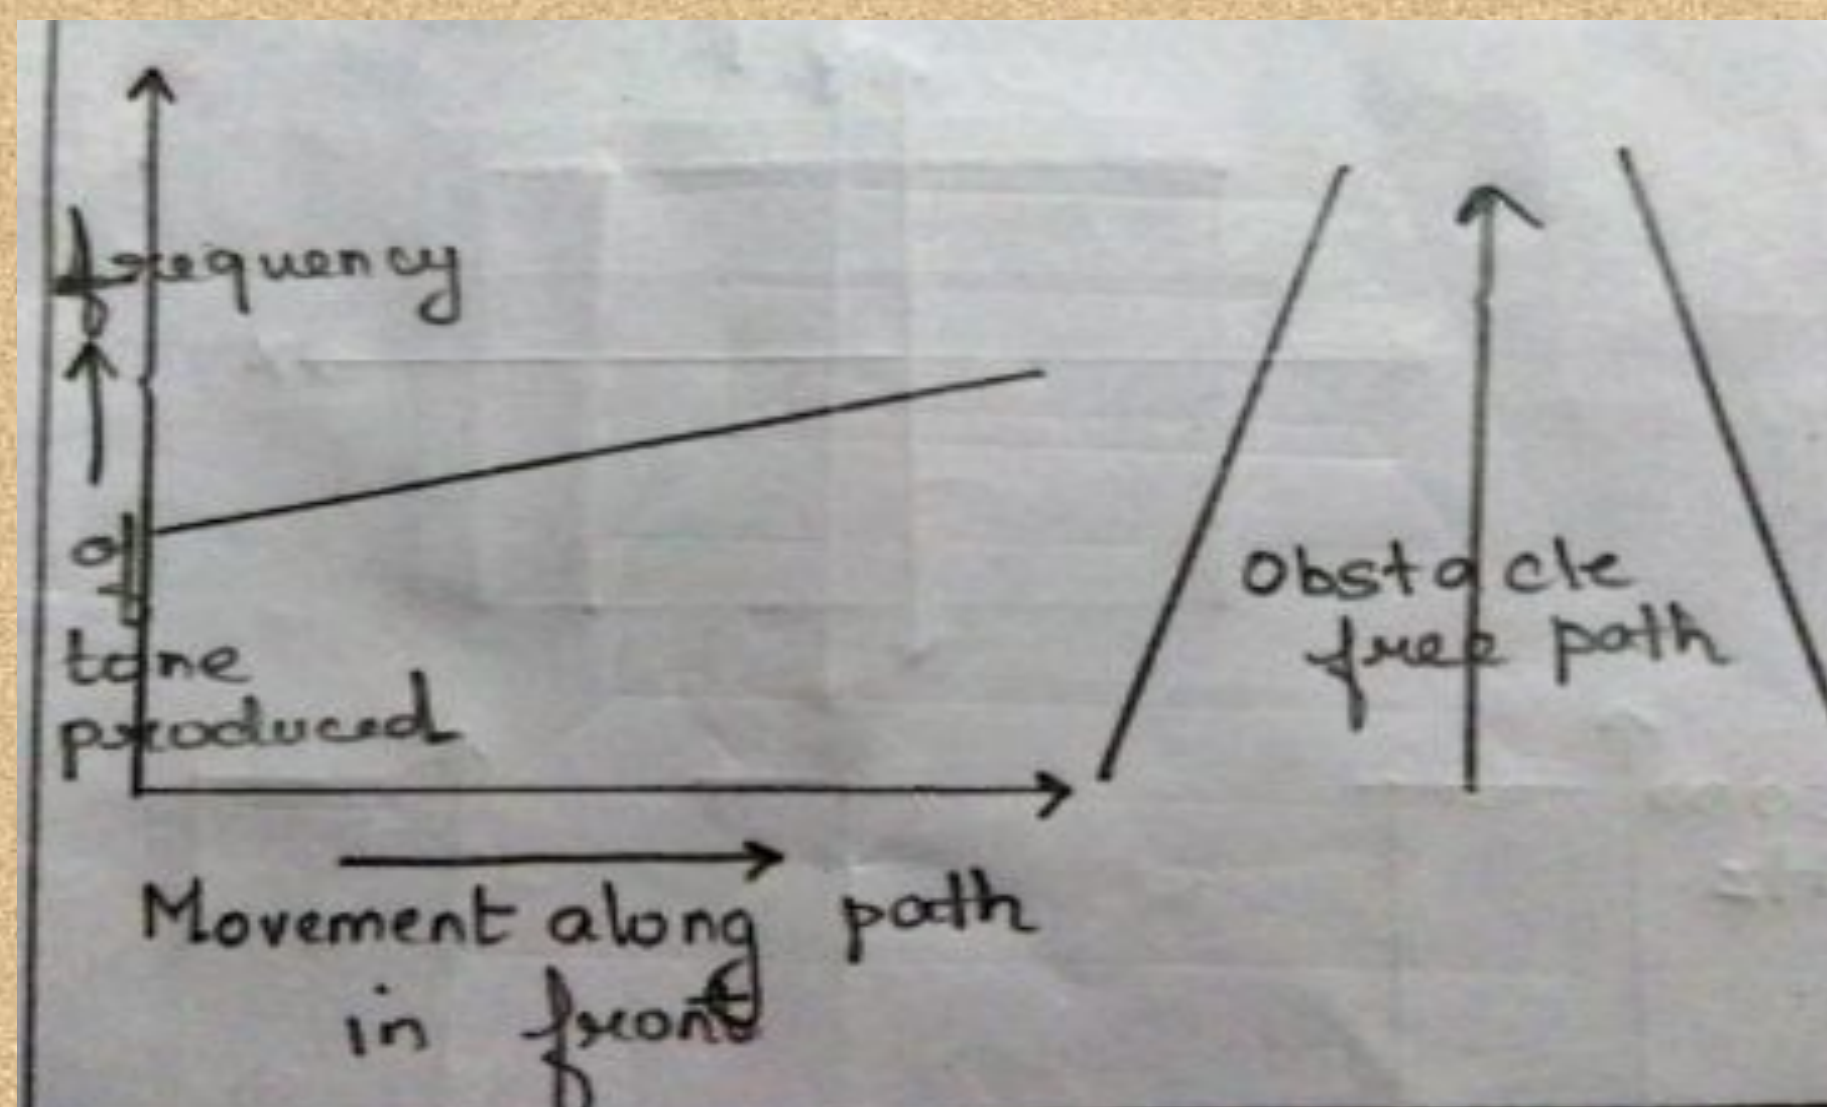 frequency
of
tone
produced
Movement along path
in front
Obstacle
free path